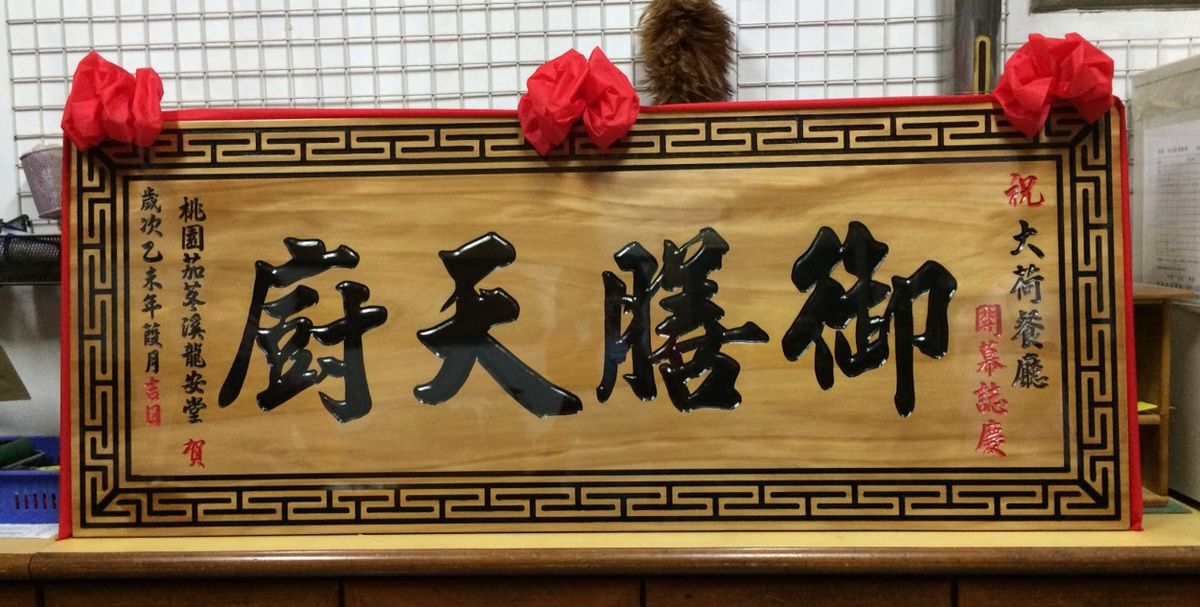 祝
大荷餐廳
開幕誌慶
御膳天廚
桃園茄苳溪龍安堂 賀
歲次乙未年葭月吉日